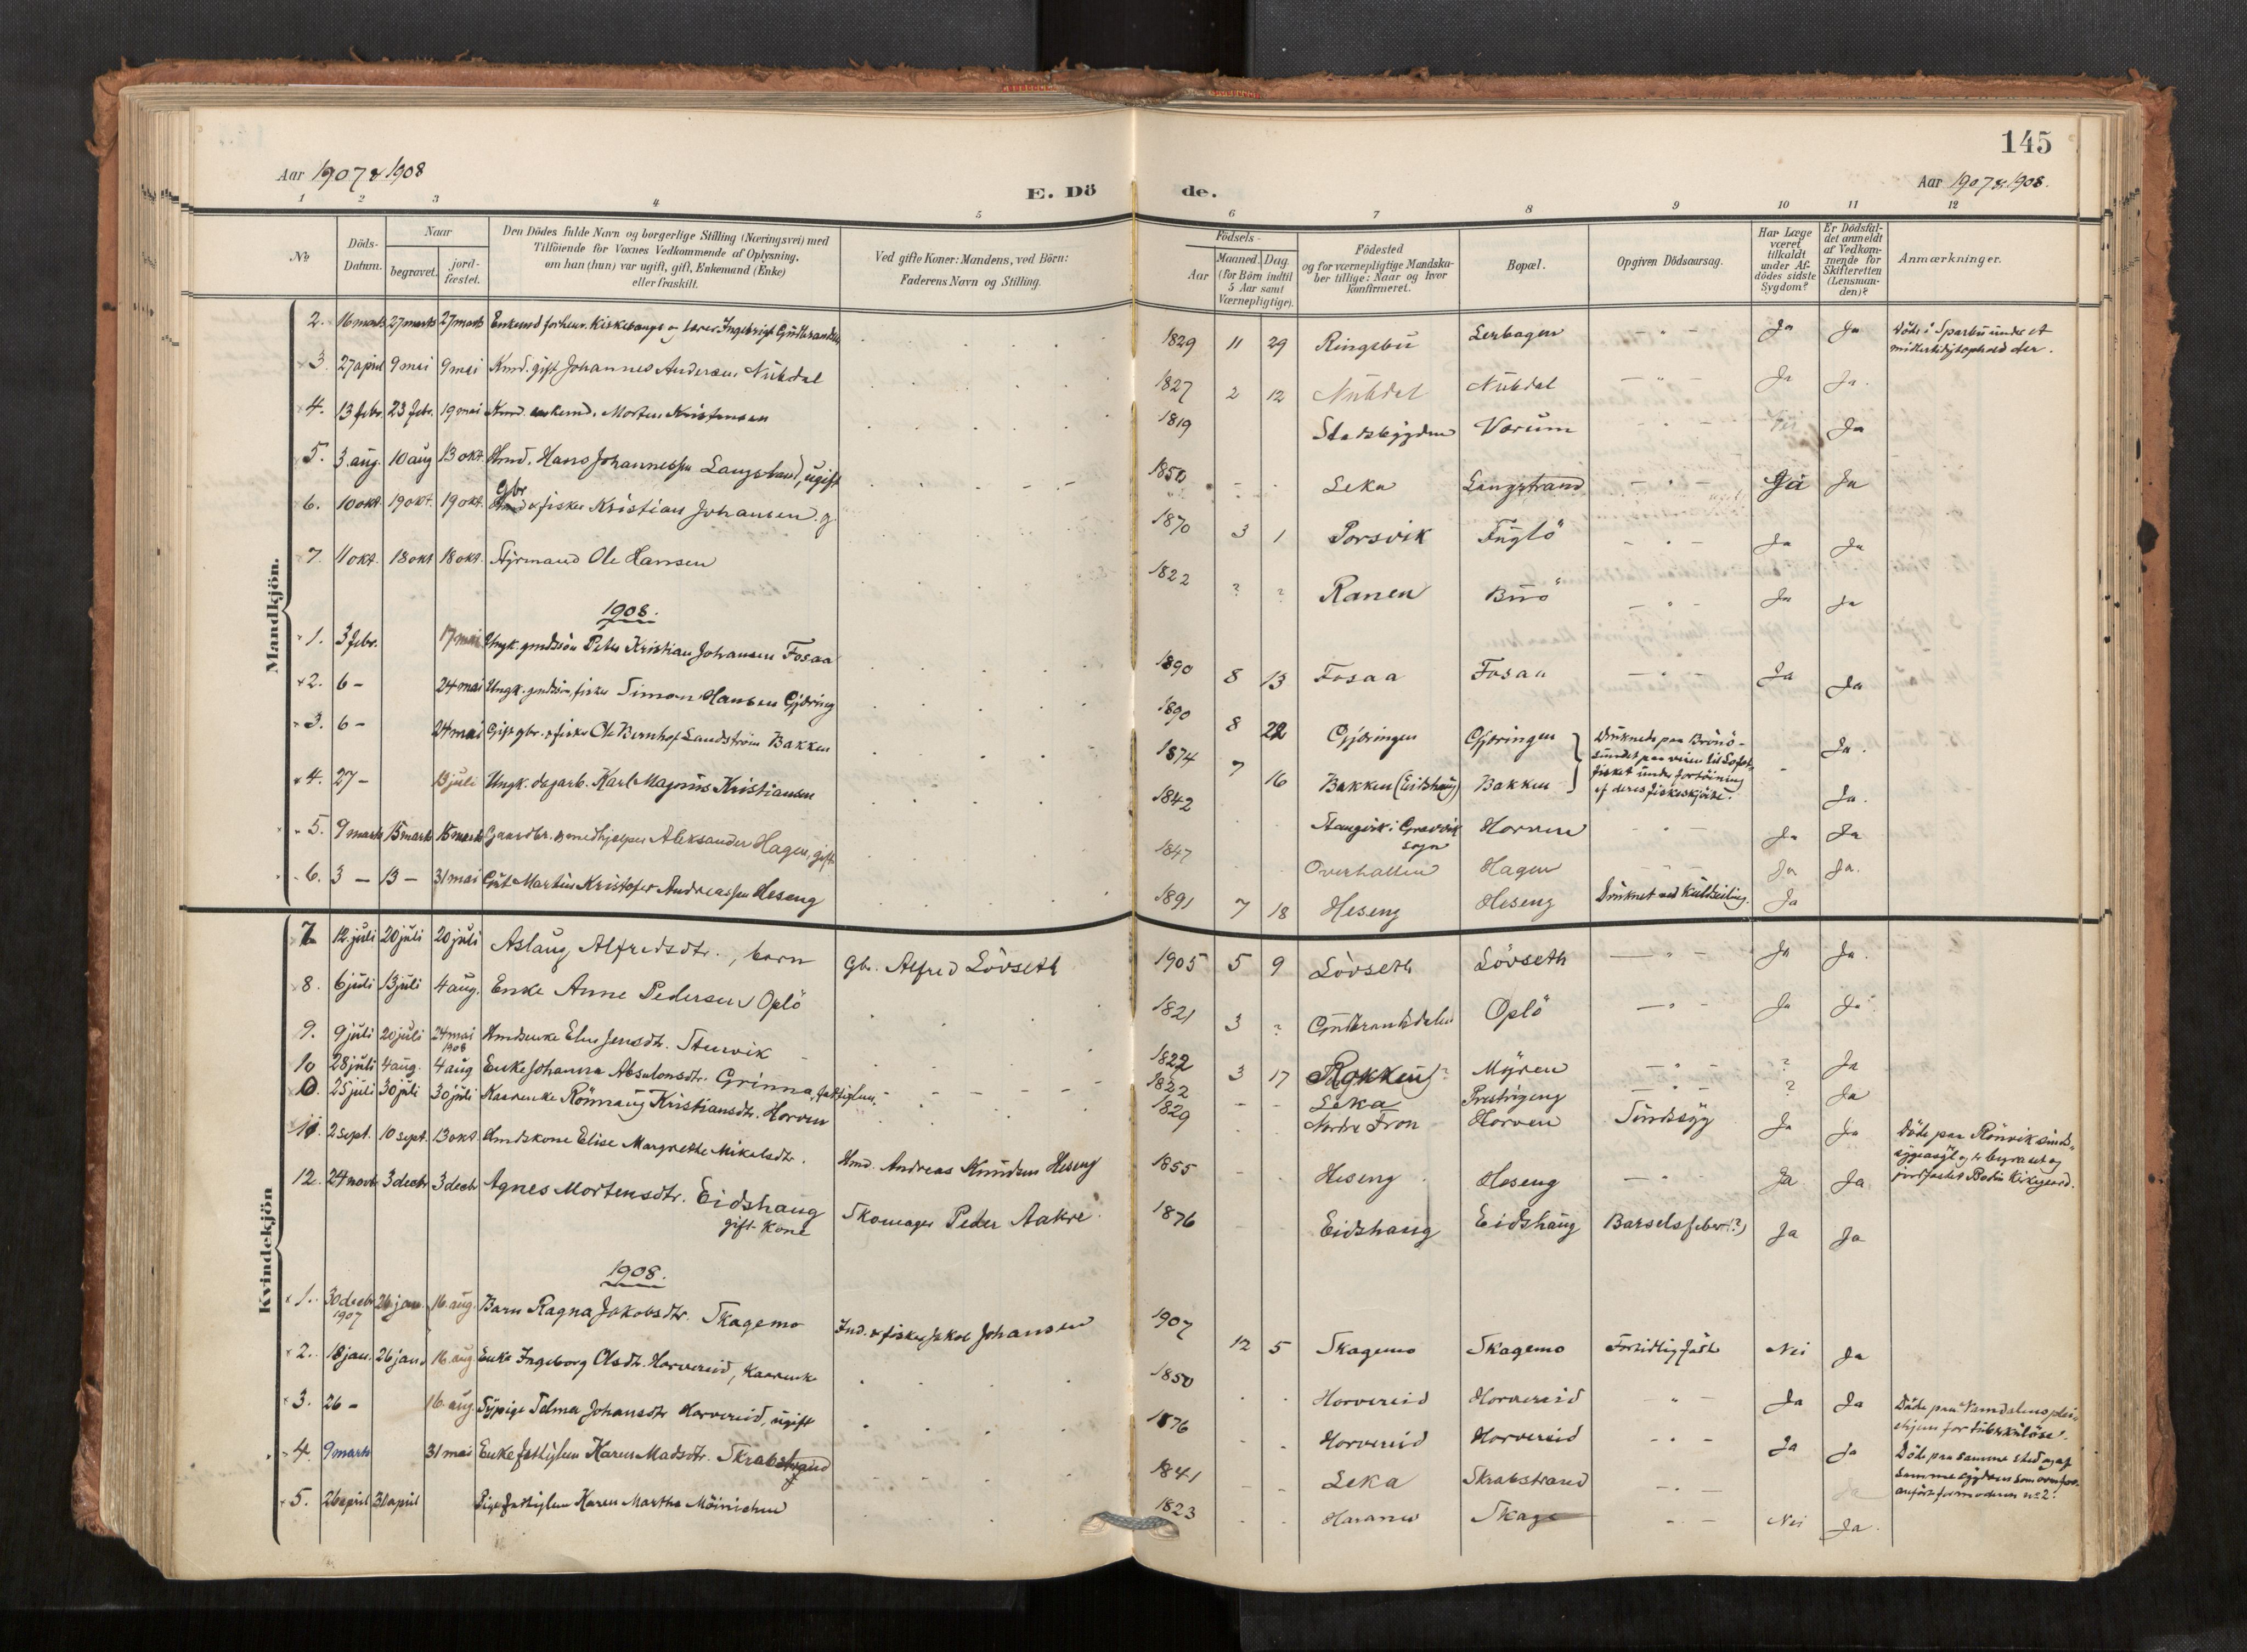 145
Aar 1907 & 1908
E. Dö de.
Aar 1907 & 1908.
1 2 3 4 5 6 7 8 9 10 11 12
No
Döds-Datum.
Naar
begravet.
jord-fæstet.
Den Dödes fulde Navn og borgerlige Stilling (Næringsvei) med
Tilföiende for Voxnes Vedkommende af Oplysning,
om han (hun) var ugift, gift, Enkemand (Enke)
eller fraskilt.
Ved gifte Koner: Mandens, ved Börn:
Faderens Navn og Stilling.
Födsels-
Aar
Maaned.
Dag.
(for Börn indtil
5 Aar samt
Værnepligtige).
Födested
og for værnepligtige Mandska-
ber tillige: Naar og hvor
konfirmeret.
Bopæl.
Opgiven Dödsaarsag.
Har Læge
været
tilkaldt
under Af-
dödes sidste
Sygdom?
Er Dödsfal-
det anmeldt
af Vedkom-
mende for
Skifteretten
(Lensman-
den)?
Anmærkninger.
Mandkjön.
2. 16 marts 27 marts 27 marts Enkemd forhenv. Kirkesanger og lærer Ingebrigt Gudbrandsen 1829 11 29 Ringebu Lerbagen - " - Ja Ja Döde i Sparbu under et
midlertidigt ophold der.
3. 27 april 9 mai 9 mai Kmd. gift Johannes Andersen Nubdal 1827 2 12 Nubdal Nubdal - " - Ja Ja.
4. 13 febr. 23 febr. 19 mai enkemd. Morten Kristensen 1819 Stadsbygden Varum - " - Ja
5. 3. aug. 10 aug 13 okt. Hmd. Hans Johannessen Langstrand, ugift 1850 - - Leka Langstrand - " - Ja Ja
6. 10 okt. 19 okt. 19 okt. Gbr & fisker Kristian Johansen g. 1870 3 1 Porsvik Fuglö - " - Ja Ja
7. 11 okt. 18 okt 18 okt. Styrmand Ole Hansen 1822 ? ? Ranen Buö - " - Ja Ja
1908.
1. 3 febr. 17 mai Ungk. gmdssön Peter Kristian Johansen Fosaa 1890 8 13 Fosaa Fosaa - " - Ja Ja
2. 6 - 24 mai Ungk. gmdssön, fisker Simon Hansen Gjöring 1890 8 22 Gjöringen Gjöringen Druknede paa Brönö-
sundet paa veien til Lofot-
fisket under fortöining
af deres fiskeskjöite. Ja.
3. 6 - 24 mai Gift gbr. & fisker Ole Bernhof Sandström Bakken 1874 7 16 Bakken (Eidshaug) Bakken Ja.
4. 27 - 13 juli Ungk. dagarb. Karl Magnus Kristiansen 1842 Stangvik i Gravvik
sogn Horven - " - Ja Ja
5. 9 marts 15 marts 15 marts Gaardbr. & medhjelper Aleksander Hagen, gift 1847 Overhallen Hagen - " - Ja Ja.
6. 3 - 13 - 31 mai Gut Martin Kristofer Andreassen Heseng 1891 7 18 Heseng Heseng Druknet ved Kuldseiling. Ja
Kvindekjön
7. 12. juli 20 juli 20 juli Aslaug Alfredsdtr., barn Gbr. Alfred Lövseth 1905 5 9 Lövseth Lövseth - " - Ja Ja.
8. 6 juli 13 juli 4 aug. Enke Anne Pedersen Oplö 1821 3 ? Gudbrandsdalen Oplö - " - Ja Ja
9. 9 juli 20 juli 24 mai
1908 Hmdsenke Elen Jensdtr. Stenvik 1822 3 17 Myren - " - ? Ja
10 28 juli 4 aug. 4 aug Enke Johanna Absalonsdtr. Grinna, fattiglem. 1822 - - Leka Prestvigeng - " - ? Ja
10. 25 juli 30 juli 30 juli Kaarenke Rönnaug Kristiansdtr. Horven 1829 Nordre Fron Horven Sindssyg Ja Ja Döde paa Rönvik sinds-
sygeasyl og er begravet og
jordfæstet Bodin Kirkegaard.
11. 2 sept. 10 sept. 13 okt. Hmdskone Elise Margrethe Mikalsdtr. Hmd. Andreas Knudsen Heseng 1855 - - Heseng Heseng - " - Ja Ja
12. 24 novbr 3 decbr 3 decbr Agnes Mortensdtr. Eidshaug
gift Kone Skomager Peder Aakre 1876 - - Eidshaug Eidshaug Barselsfeber (?) Ja Ja
1908.
1. 30 decbr
1907 26 jan. 16. aug. Barn Ragna Jakobsdtr. Skagemo Ind. & fisker Jakob Johansen 1907 12 5 Skagemo Skagemo Fortidlig födt Nei Ja
2. 18 jan. 26 jan. 16. aug. Enke Ingeborg Olsdtr. Horvereid, Kaarenke 1850 Horvereid Horvereid - " - Ja Ja Döde paa Namdalens pleie-
hjem for tuberkulöse.
3. 26 - 16. aug. Typige Talma Johansdtr Horvereid, ugift 1876 - - Horvereid Horvereid - " - Ja Ja Döde paa samme sted og af
samme sygdom som ovenfor
anfört for moderen no 2.
4. 9 marts 31 mai Enke fattiglem Karen Madsdtr. Skrabstrand 1841 - - Leka Skrabstrand - " - Ja
5. 26 april 31 april Pige fattiglem Karen Martha Möinichen 1823 - - Skage - " - Nei Ja.